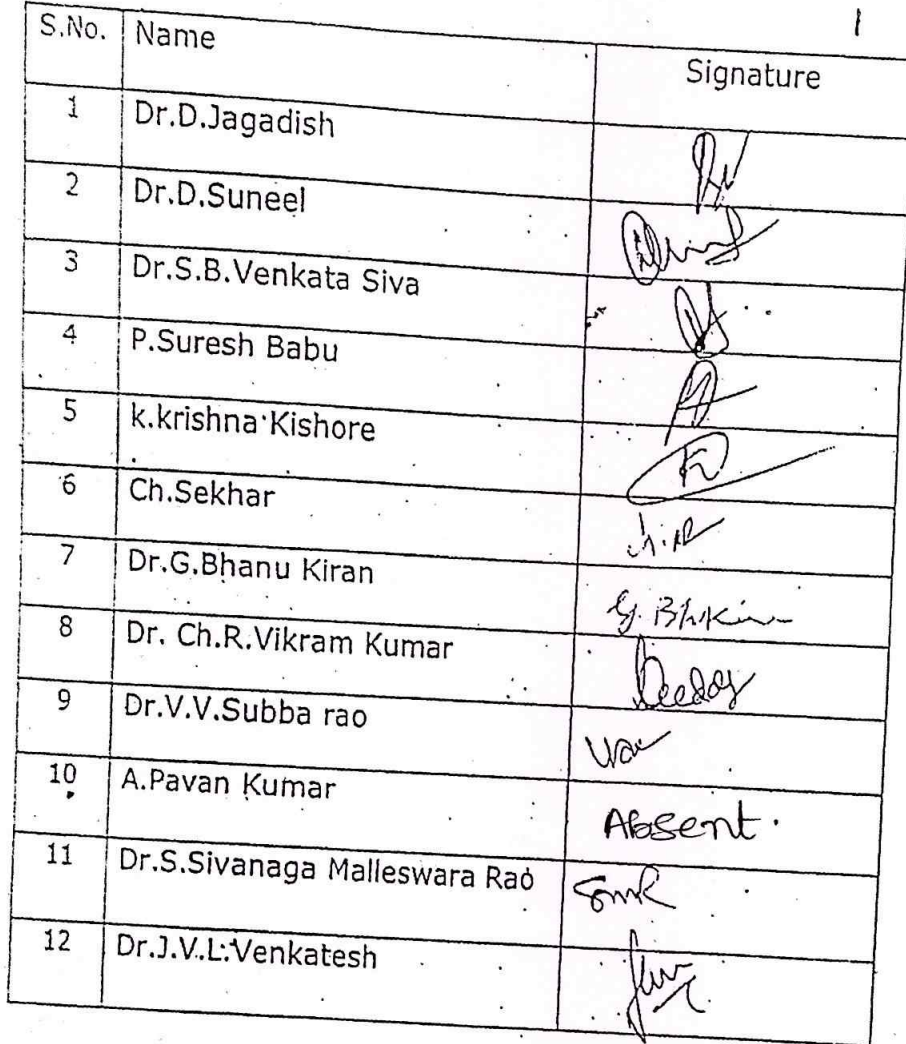 1
S.No. Name Signature
1 Dr.D.Jagadish
2 Dr.D.Suneel
3 Dr.S.B.Venkata Siva
4 P.Suresh Babu
5 k.krishna Kishore
6 Ch.Sekhar
7 Dr.G.Bhanu Kiran
8 Dr. Ch.R.Vikram Kumar
9 Dr.V.V.Subba rao
10 A.Pavan Kumar Absent.
11 Dr.S.Sivanaga Malleswara Rao SmR
12 Dr.J.V.L.Venkatesh